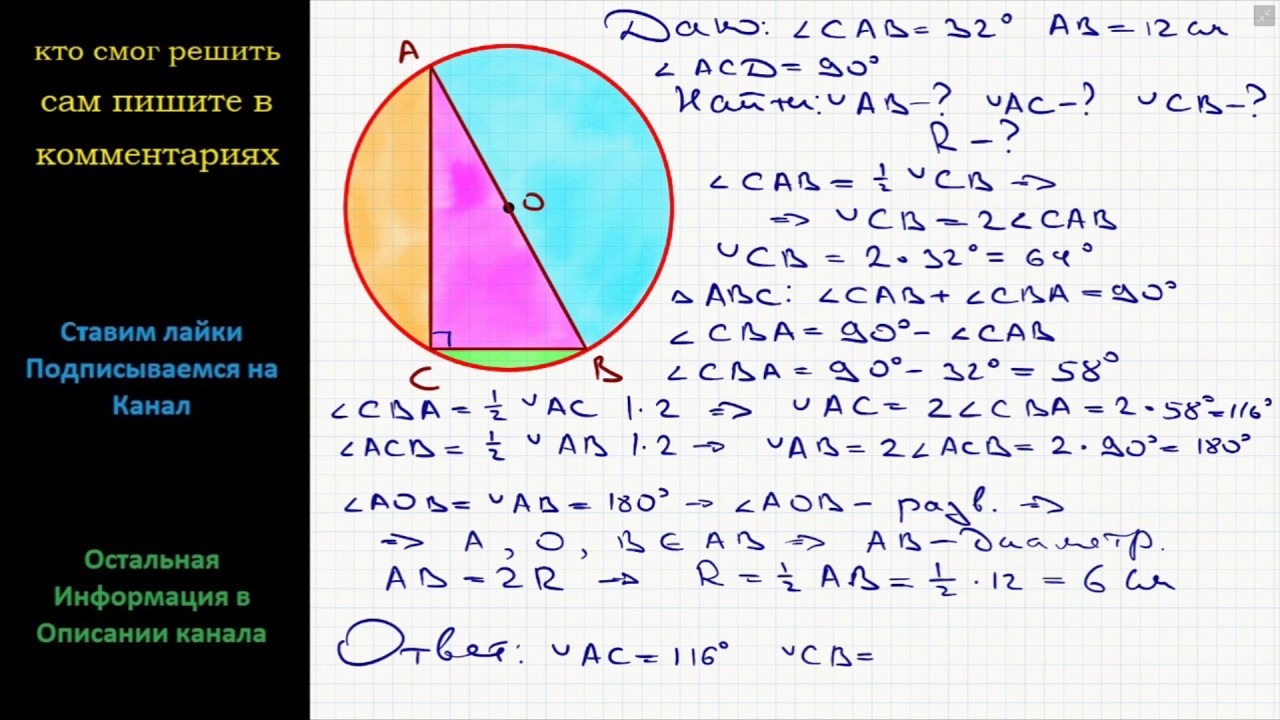 кто смог решить
сам пишите в
комментариях
Ставим лайки
Подписываемся на
Канал
Остальная
Информация в
Описании канала
A
O
C
B
Дано: ∠CAB = 32° AB = 12 см
∠ ACD = 90°
Найти: ◡AB - ? ◡AC - ? ◡CB - ?
R - ?
∠CAB = ½ ◡CB ⇒
⇒ ◡CB = 2∠CAB
◡CB = 2 · 32° = 64°
△ ABC: ∠CAB + ∠CBA = 90°
∠CBA = 90° - ∠CAB
∠CBA = 90° - 32° = 58°
∠CBA = ½ ◡AC |·2 ⇒ ◡AC = 2∠CBA = 2 · 58° = 116°
∠ACB = ½ ◡AB |·2 → ◡AB = 2∠ACB = 2 · 90° = 180°
∠AOB = ◡AB = 180° → ∠AOB - разв. ⇒
⇒ A, O, B ∈ AB ⇒ AB - диаметр.
AB = 2R → R = ½ AB = ½ · 12 = 6 см
Ответ: ◡AC = 116° ◡CB =